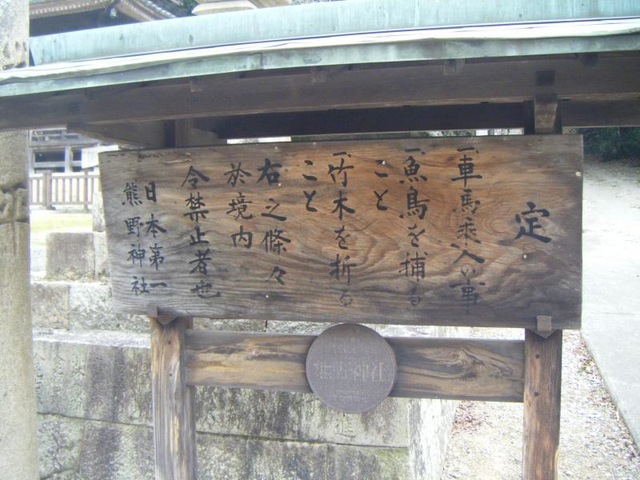 定
一車馬乗入る事
一魚鳥を捕る
こと
一竹木を折る
こと
右之條々
於境内
令禁止者也
日本第一
熊野神社